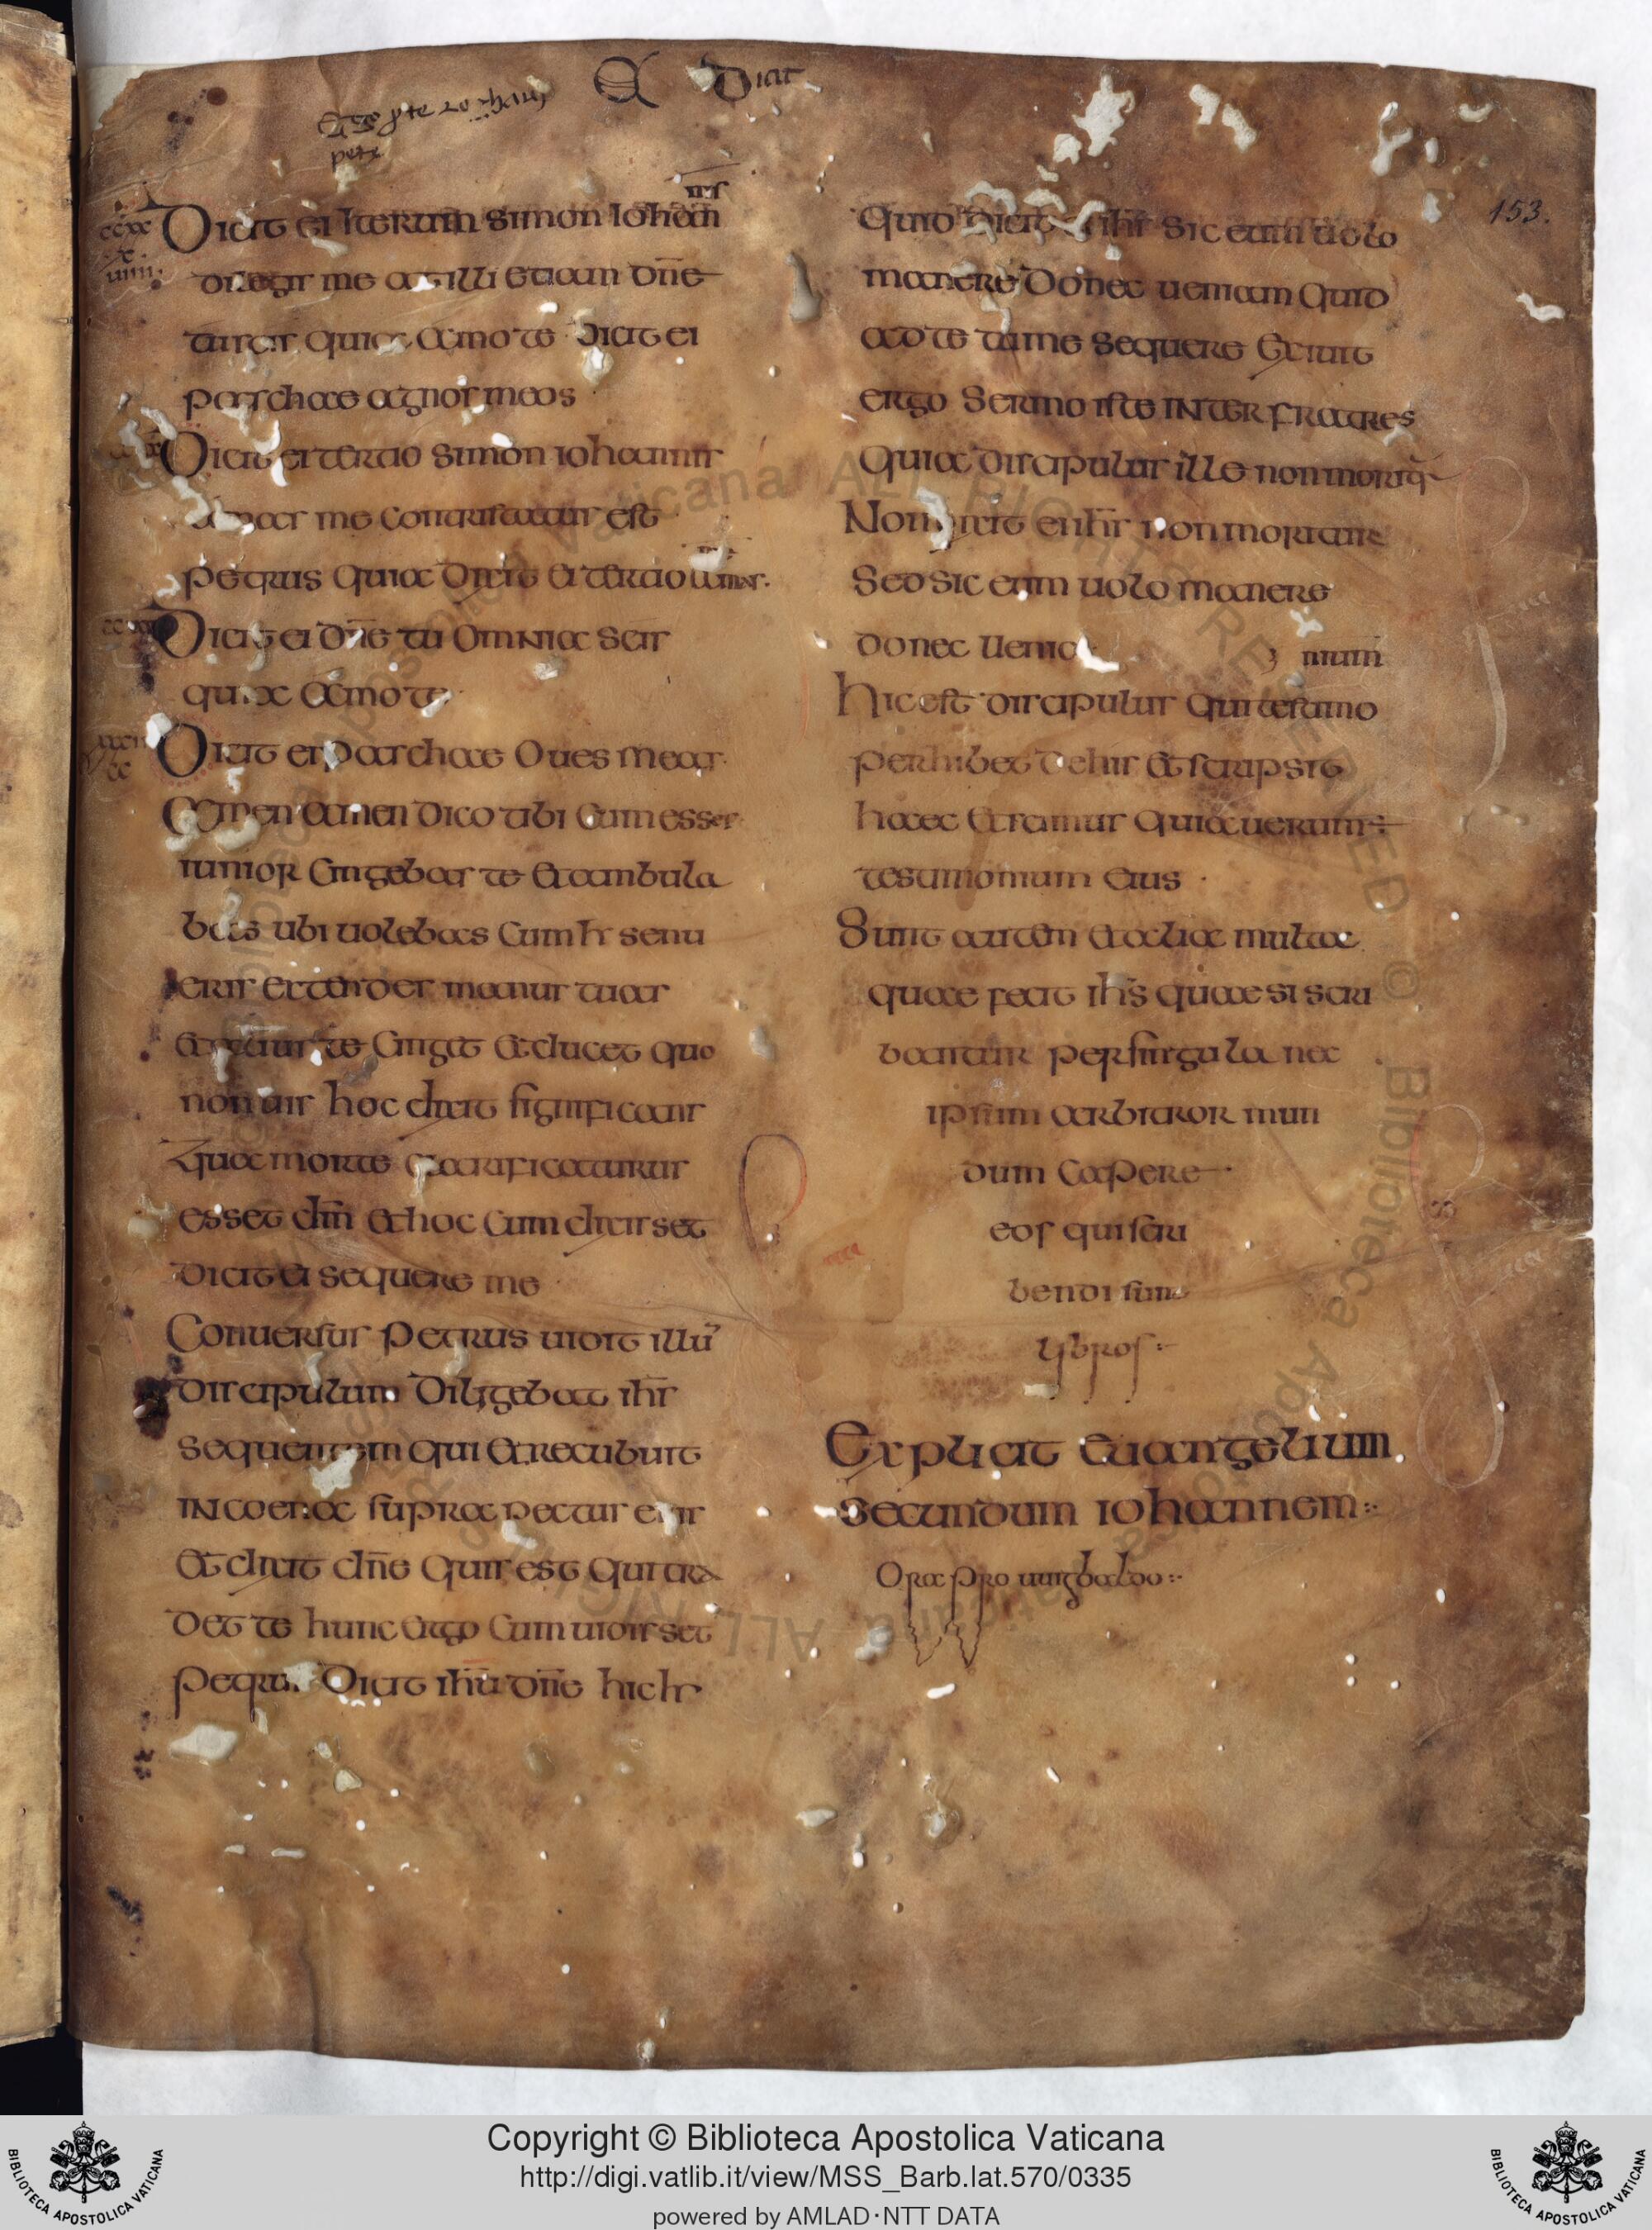 Dicit
Dicit ei iterum simon iohan
nis
diligis me ait illi etiam dn̄e
tu scis quia amo te dicit ei
pasche agnos meos
Dicit ei tertio simon iohannis
amas me contristatus est
petrus quia dixit ei tertio amas
Dicit ei dn̄e tu omnia scis
quia amo te
Dicit ei pasche oues meas
Amen amen dico tibi cum esses
iunior cingebas te et ambula
bas ubi uolebas cum h̄ senu
eris extendes manus tuas
et alius te cinget et ducet quo
non uis hoc dixit significans
qua morte clarificaturus
esset dm̄ et hoc cum dixisset
dicit ei sequere me
Conuersus petrus uidit illū
discipulum diligebat ihs̄
sequentem qui et recubuit
in coena supra pectus eius
et dixit dn̄e quis est qui tra
det te hunc ergo cum uidisset
petrus dicit ihū dn̄e hic h̄
153.
quid dicit ei ihs̄ sic eum uolo
manere donec ueniam quid
ad te tu me sequere Exiuit
ergo sermo iste inter fratres
quia discipulus ille non moritᷣ
Non dixit ei ihs̄ non moritur
sed sic eum uolo manere
donec uenio
nium
hic est discipulus qui testimo
perhibet de his et scripsit
haec et scimus quia uerum ÷
testimonium eius
Sunt autem et alia multa
quae fecit ihs̄ quae si scri
bantur per singula nec
ipsum arbitror mun
dum capere
eos qui scri
bendi sunt
lybros :-
Explicit euangelium
secundum iohannem :-
Ora pro uuigbaldo :-
Copyright © Biblioteca Apostolica Vaticana
http://digi.vatlib.it/view/MSS_Barb.lat.570/0335
powered by AMLAD·NTT DATA
BIBLIOTECA APOSTOLICA VATICANA
BIBLIOTECA APOSTOLICA VATICANA